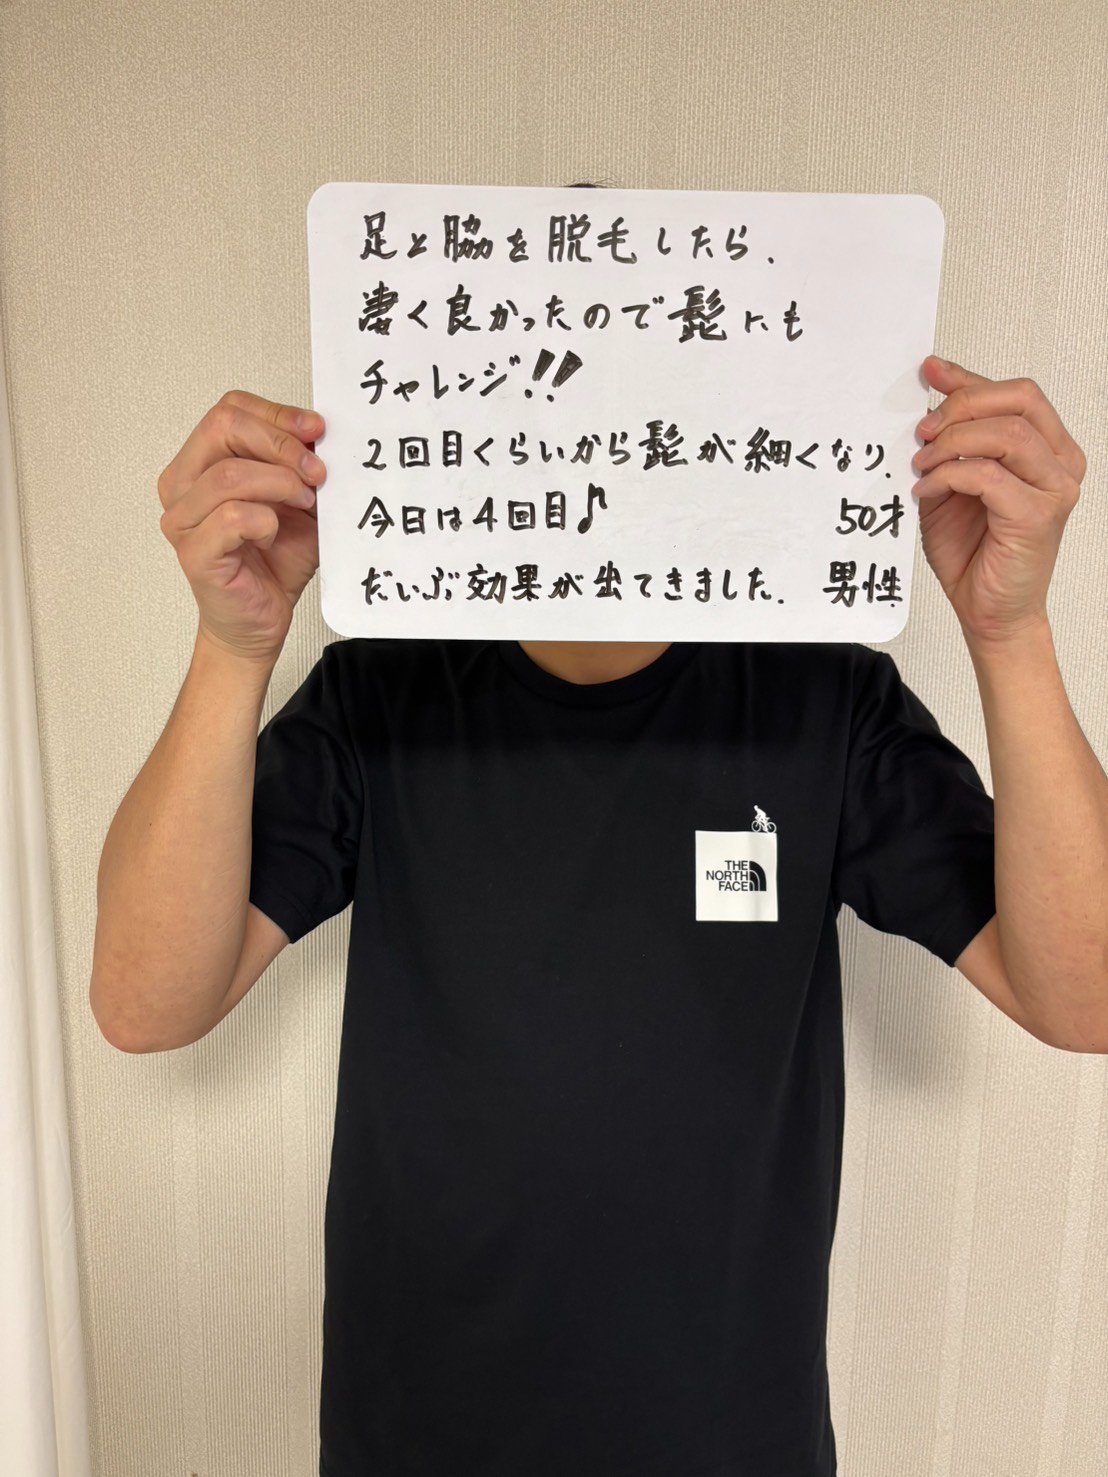 足と脇を脱毛したら、
凄く良かったので髭にも
チャレンジ!!
2回目くらいから髭が細くなり、
今日は4回目♪ 50才
だいぶ効果が出てきました。 男性
THE
NORTH
FACE